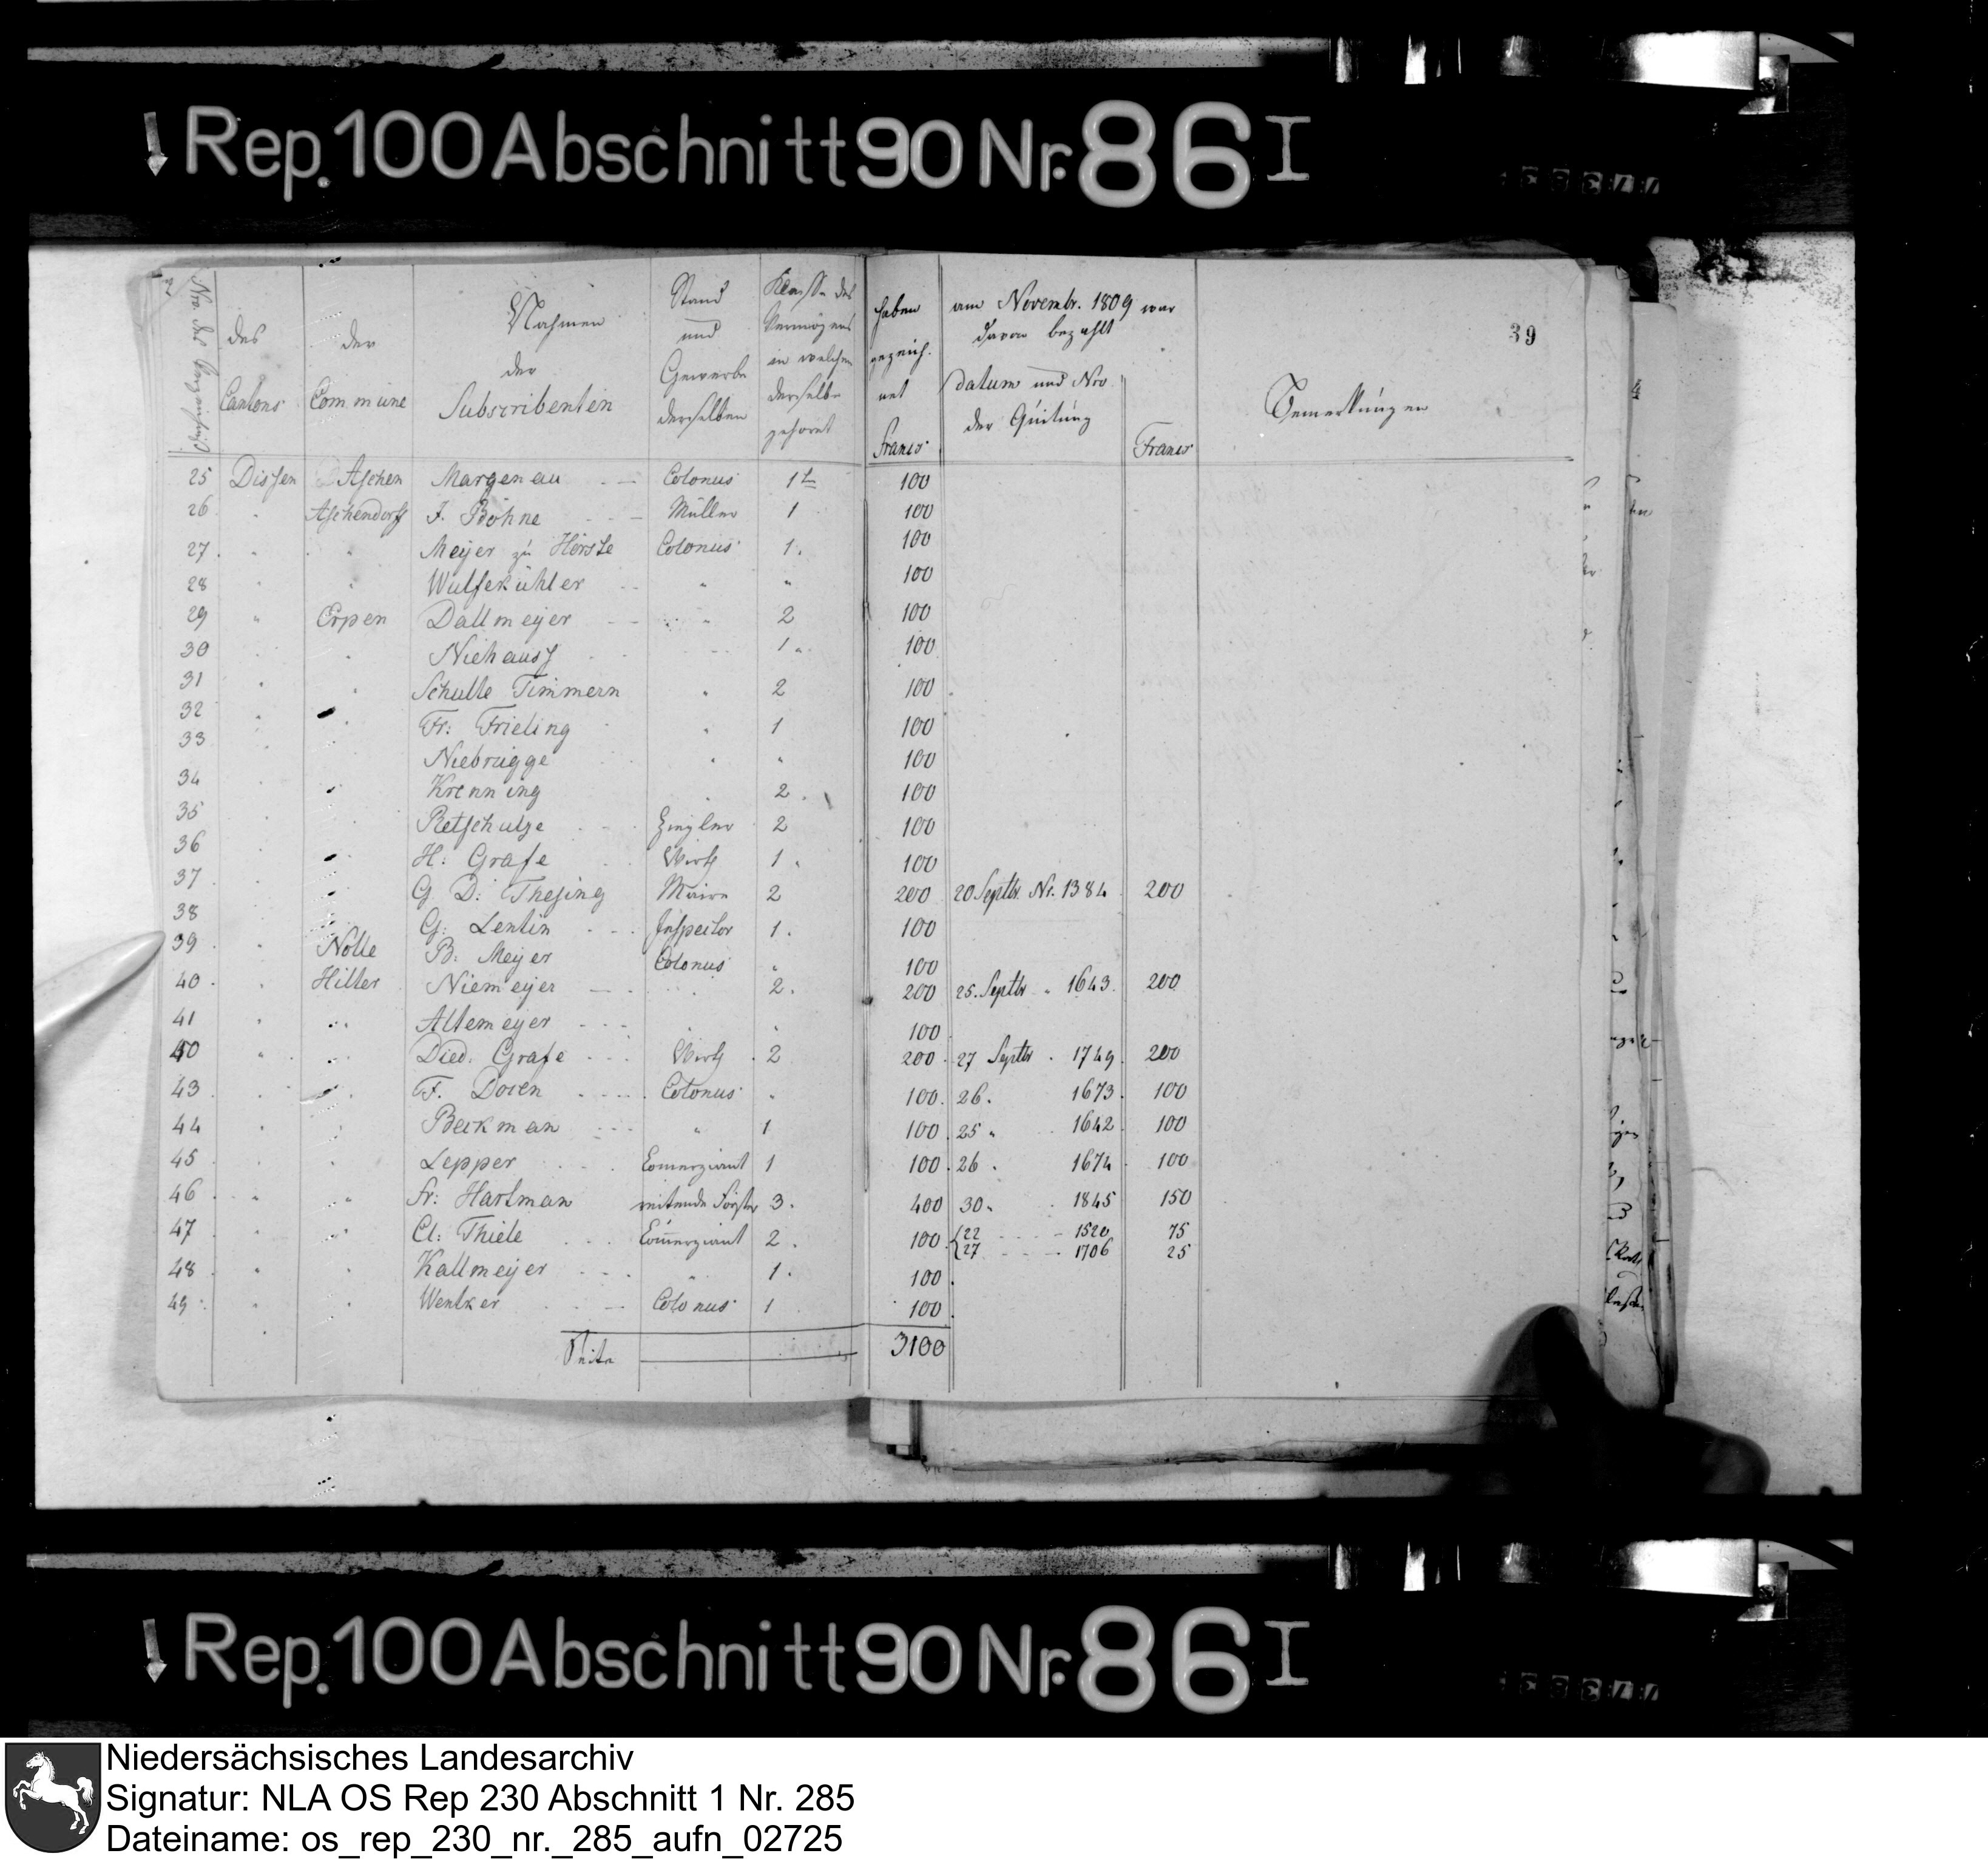 Rep. 100 Abschnitt 90 Nr. 86 I
39
Nro. des Verzeichniß
des Cantons
der Commüne
Nahmen der Subscribenten
Stand und Gewerbe derselben
Klasse des Vermögens in welchen derselbe gehoret
haben gezeichnet Francs
am Novembr. 1809 war davon bezahlt
datum und Nro. der Quitung
Francs
Bemerkungen
25 Dissen Aschen Margenau Colonus 1te 100
26 " Aschendorf J. Böhne Müller 1 100
27 " " Meijer zu Hörste Colonus 1. 100
28 " " Wulfekühler " " 100
29 " Erpen Dallmeijer " 2 100
30 " " Niehauss 1 " 100
31 " " Schulte Timmern " 2 100
32 " " Fr: Frieling " 1 100
33 Niebrügge " " 100
34 " Krenning " 2. 100
35 " Retschulze Ziegler 2 100
36 " " H: Grafe Wirth 1. 100
37 " " G. D: Thesing Maire 2 200 20 Septbr. Nr. 1384 200
38 " G: Lentin Inspector 1. 100
39 " Nolle B: Meijer Colonus " 100
40 " Hilter Niemeijer " 2. 200 25. Septbr " 1643 200
41 " " Altemeyer " " 100
40 " " Died. Grafe Wirth 2 200 27 Septbr " 1749 200
43 " " F. Doren Colonus " 100 26. 1673 100
44 " " Beckman " 1 100 25 " 1642 100
45 " " Lepper Comerziant 1 100 26 " 1674 100
46 " " Fr: Hartman reitende Förster 3. 400 30 " 1845 150
47 " " Cl: Thiele Comerziant 2. 100 22 1520 75
27 1706 25
48 " " Kallmeijer " 1. 100
49 " " Wenker Colonus 1 100
Seite 3100
Rep. 100 Abschnitt 90 Nr. 86 I
Niedersächsisches Landesarchiv
Signatur: NLA OS Rep 230 Abschnitt 1 Nr. 285
Dateiname: os_rep_230_nr._285_aufn_02725